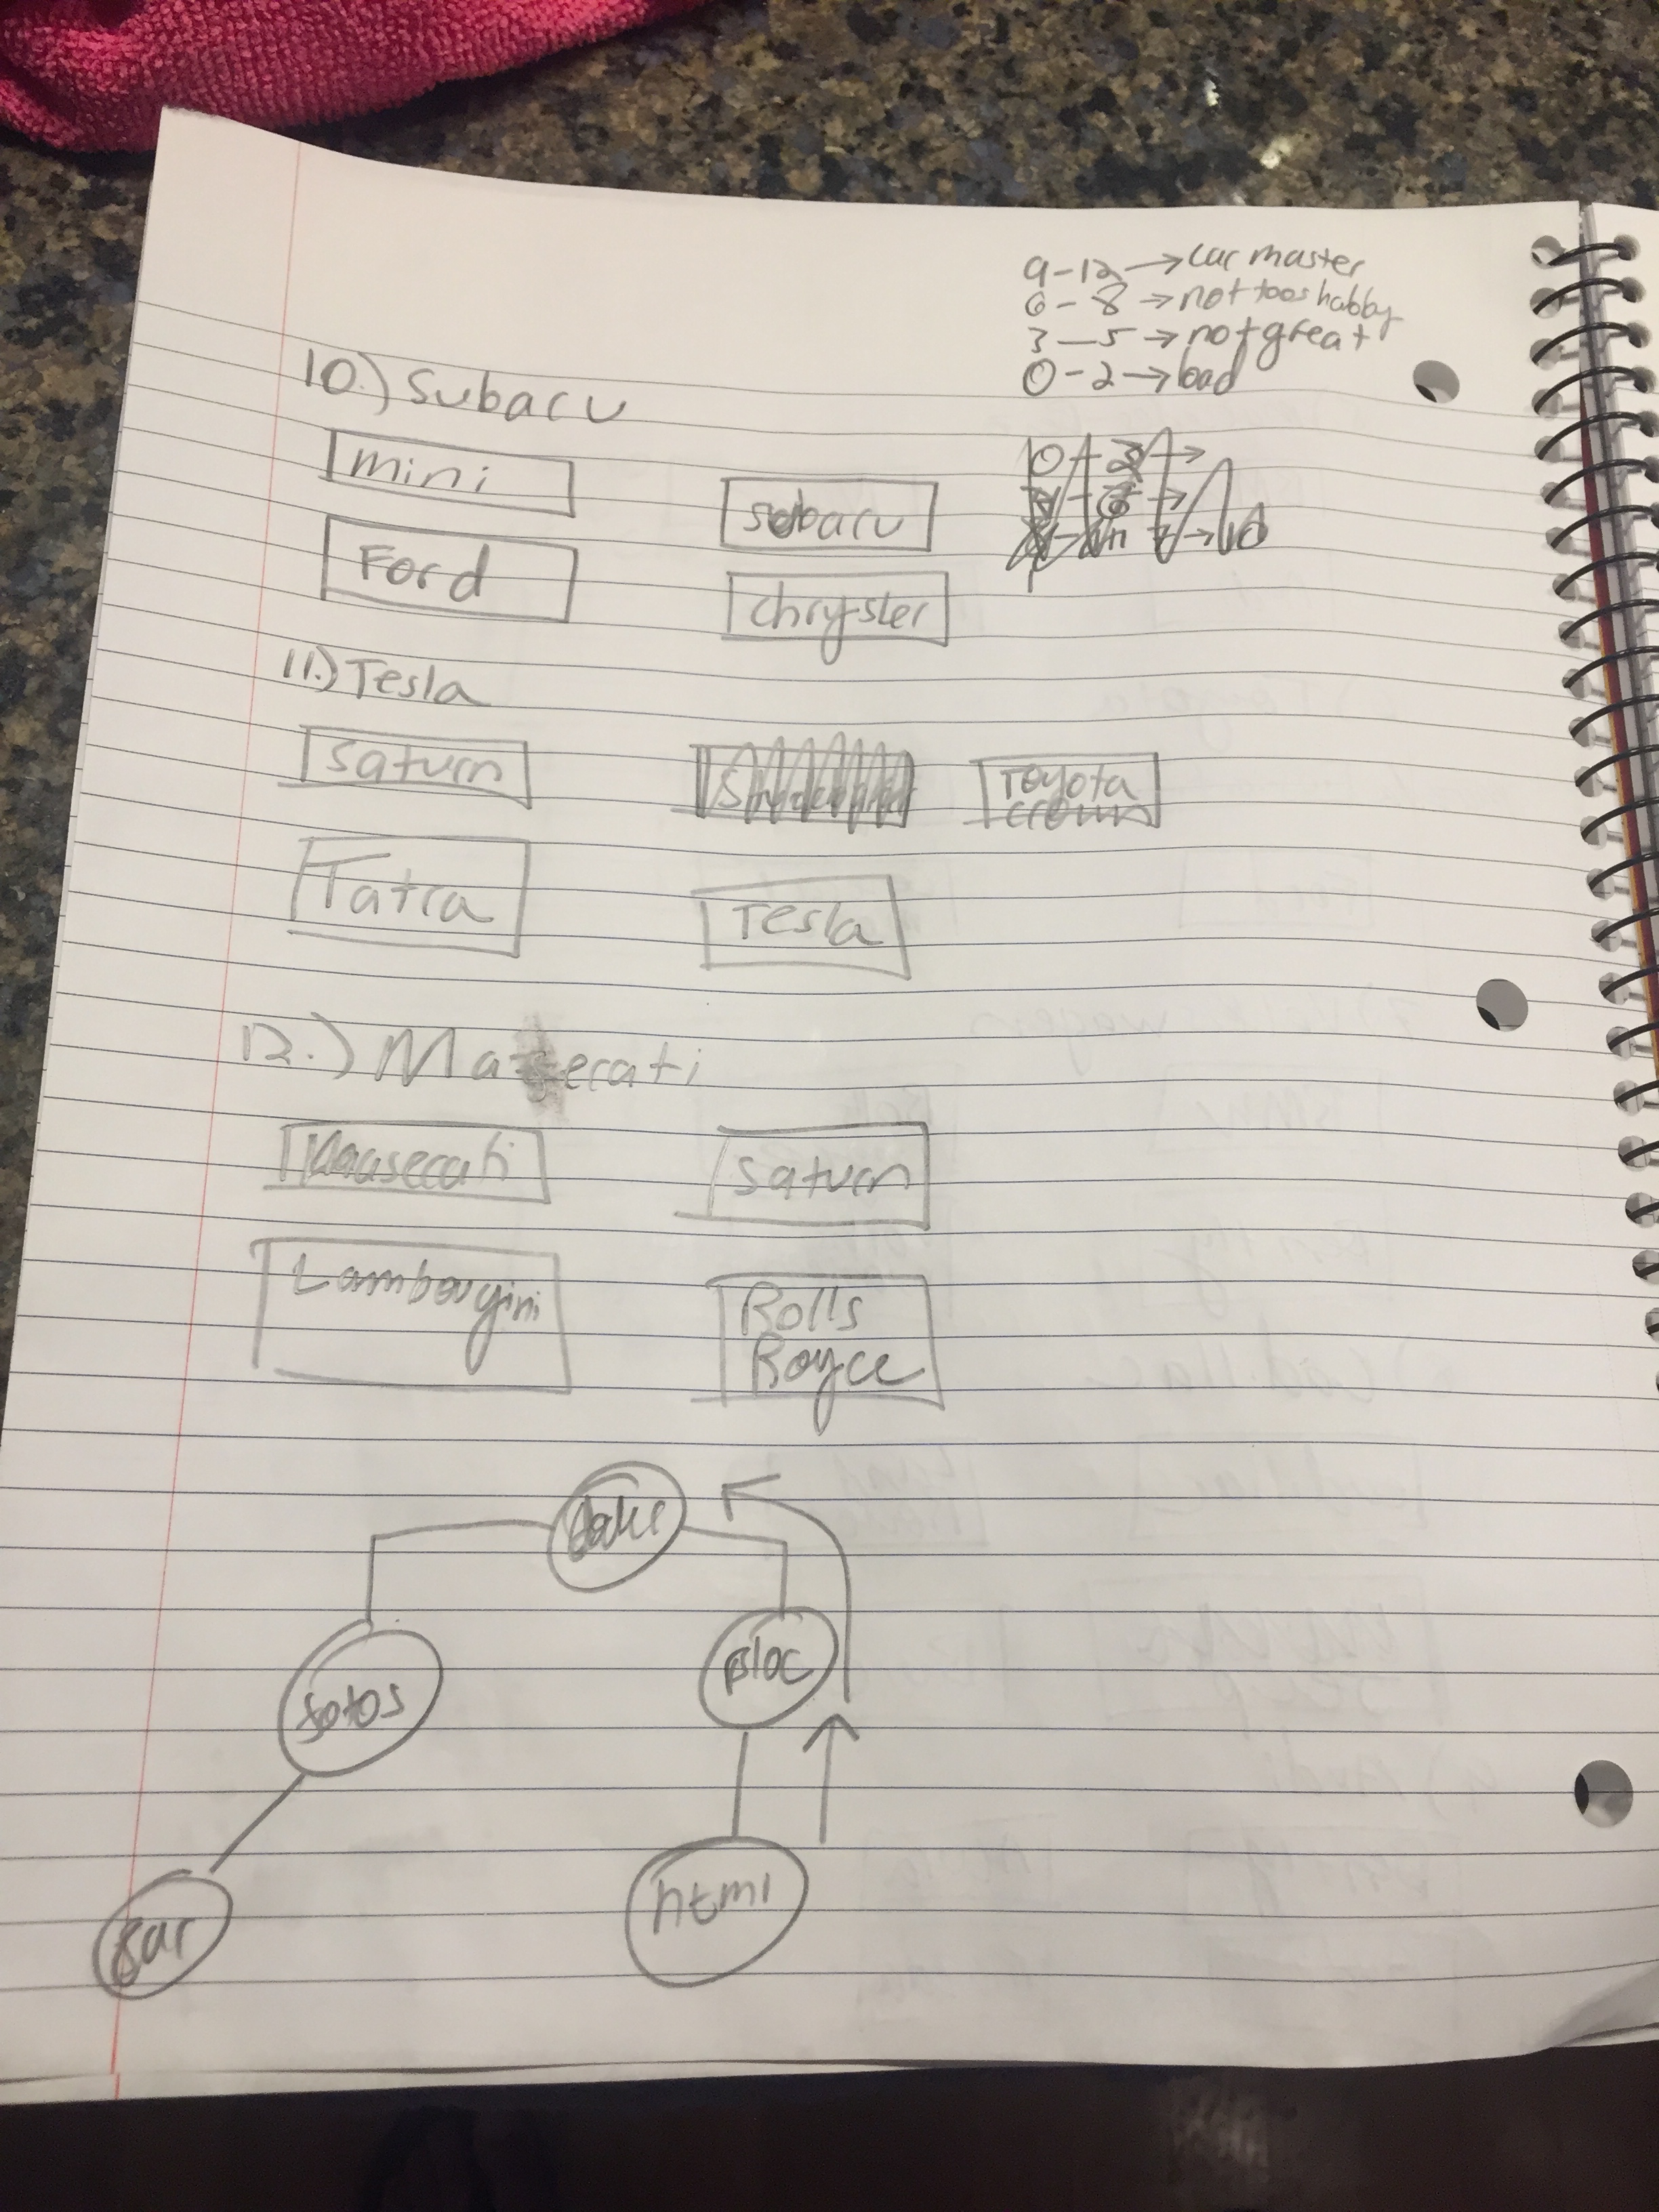 9-12 → car master
6-8 → not too shabby
3-5 → not great
0-2 → bad
10.) Subaru
mini
subaru
Ford
chrysler
11.) Tesla
Saturn
Toyota
crown
Tatra
Tesla
12.) Maserati
Maaserati
Saturn
Lambougini
Rolls
Royce
fotos
html